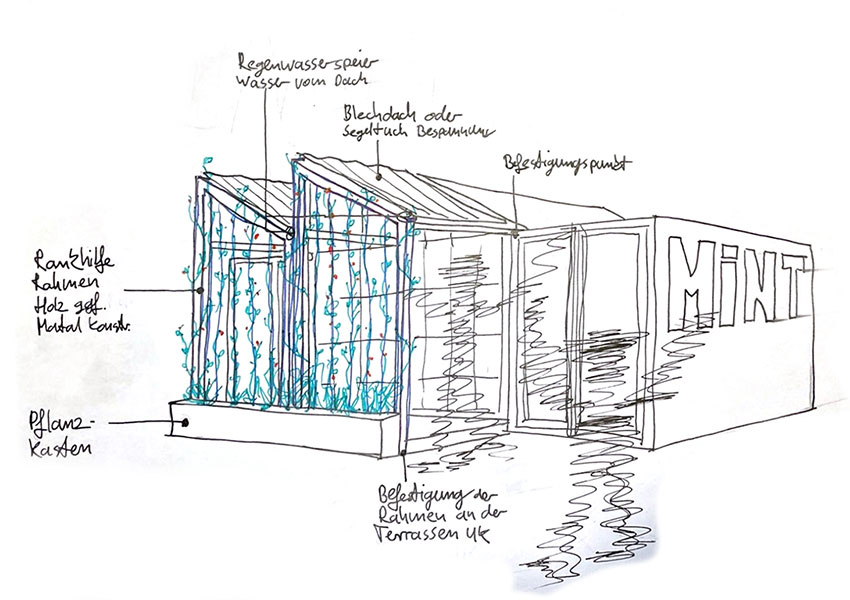 Regenwasserspeier
Wasser vom Dach
Blechdach oder
Segeltuch Bespannung
Befestigungspunkt
Rankhilfe
Rahmen
Holz ggf.
Metal Konstr.
MiNT
Pflanz-
Kasten
Befestigung der
Rahmen an der
Terrassen UK